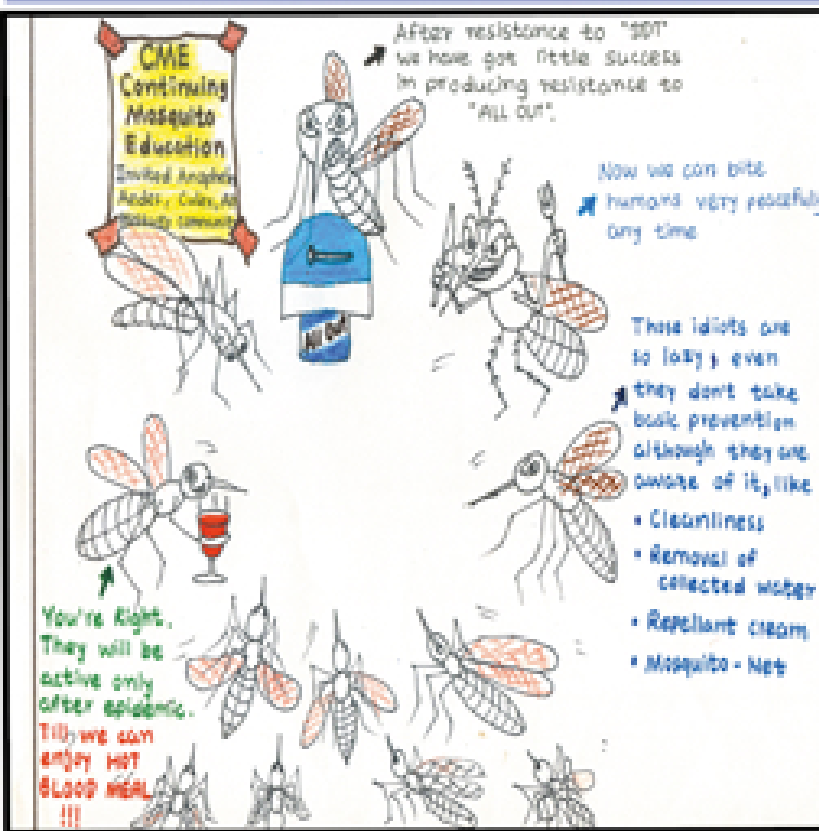 CME
Continuing
Mosquito
Education
Invited Anophele
Aedes, Culex, An
Mosquito Community
After resistance to "DDT"
we have got little success
in producing resistance to
"ALL OUT".
Now we can bite
humans very peacefully
any time
All Out
Those idiots are
so lazy, even
they don't take
basic prevention
although they are
aware of it, like
• Cleanliness
• Removal of
collected water
• Repellant cream
• Mosquito - Net
You're Right.
They will be
active only
after epidemic.
Till we can
enjoy HOT
BLOOD MEAL
!!!